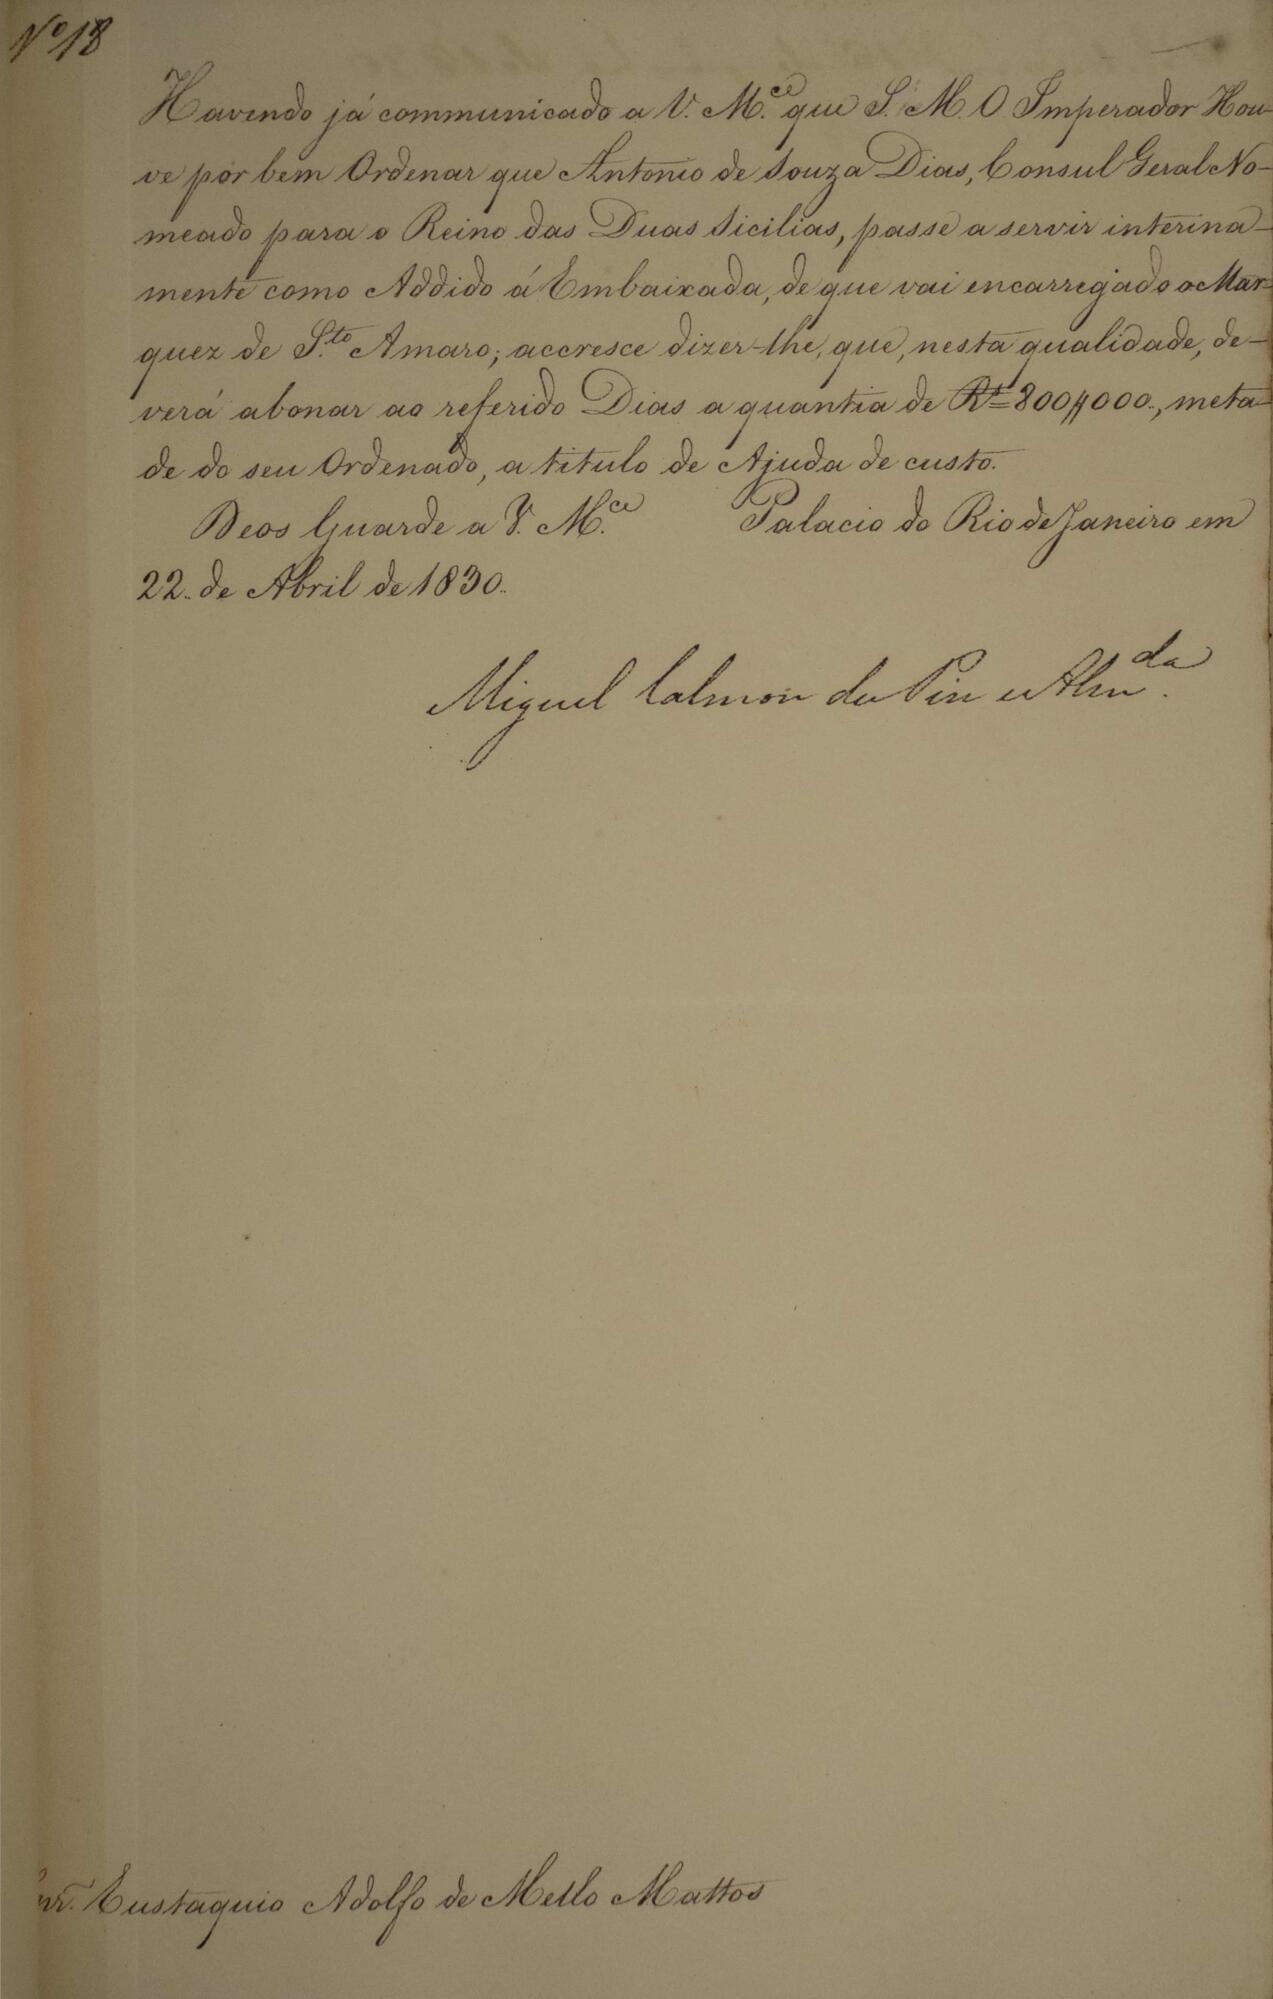 Nº 18
Havendo já communicado a V. M.ce que S. M. O Imperador Hou-
ve por bem Ordenar que Antonio de Souza Dias, Consul Geral No-
meado para o Reino das Duas Sicilias, passe a servir interina-
mente como Addido á Embaixada, de que vai encarregado o Mar-
quez de S.to Amaro; accresce dizer-lhe, que, nesta qualidade, de-
verá abonar ao referido Dias a quantia de Rs 800$000., meta-
de do seu Ordenado, a titulo de Ajuda de custo.
Deos Guarde a V. M.ce Palacio do Rio de Janeiro em
22. de Abril de 1830.
Miguel Calmon du Pin e Alm.da
Snr. Eustaquio Adolfo de Mello Mattos